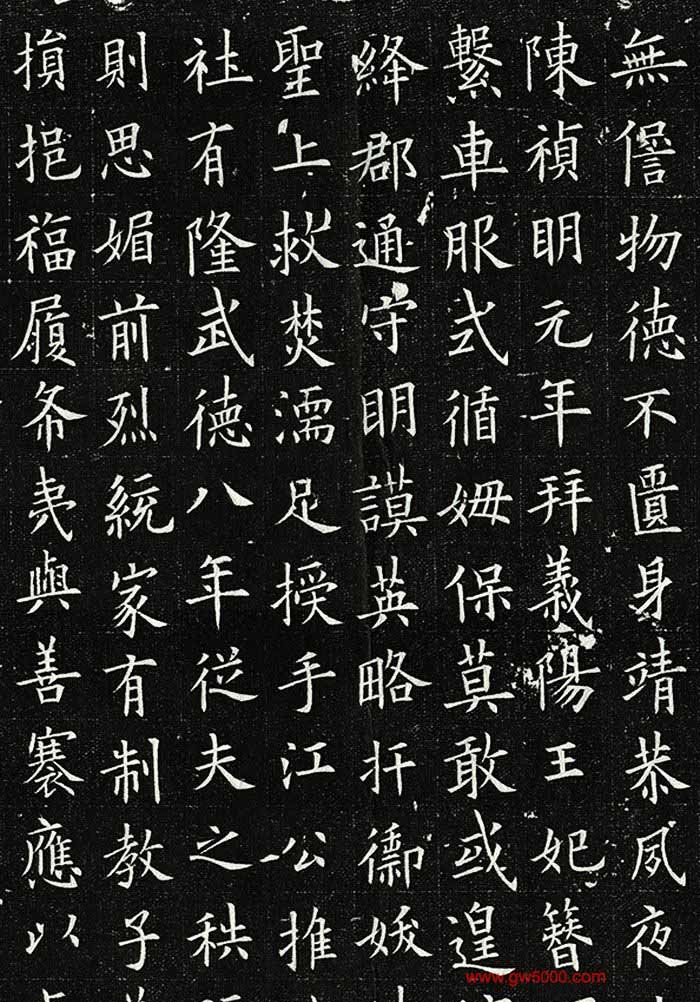 無僁物德不匱身靖恭夙夜
陳禎明元年拜義陽王妃簪
繫車服式循姆保莫敢或遑
絳郡通守明謨英略扞禦
聖上救焚濡足授手江公推
社有隆武德八年從夫之秩
則思媚前烈統家有制教子
損挹福履希夷與善褰應以
www.gw5000.com